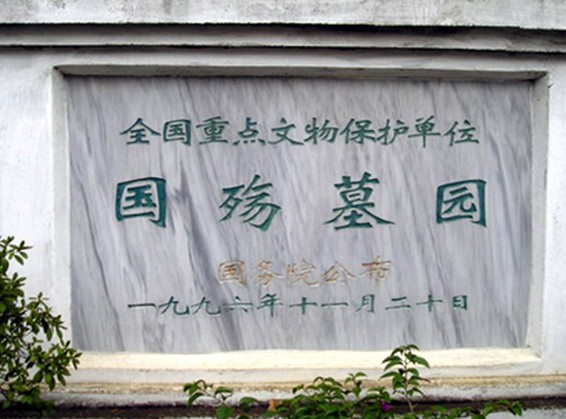 全国重点文物保护单位
国殇墓园
国务院公布
一九九六年十一月二十日